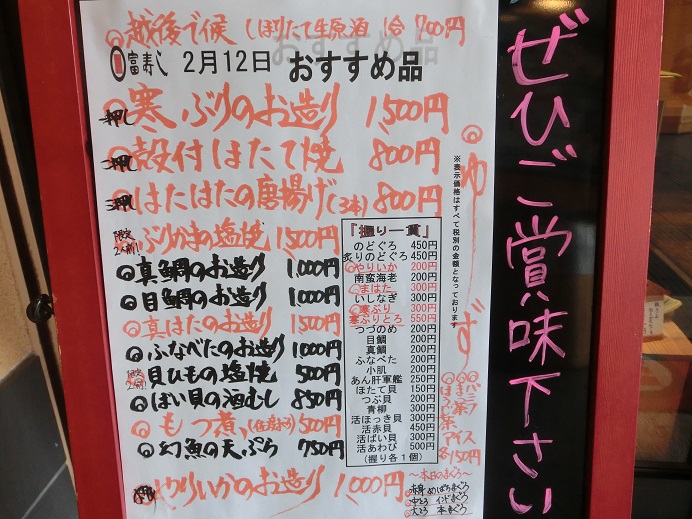 越後で候 しぼりたて生原酒 1合 700円
富寿し 2月12日 おすすめ品
一押し 寒ぶりのお造り 1,500円
二押し 殻付ほたて焼 800円
三押し はたはたの唐揚げ(3本) 800円
限定2人前! ぶりかまの塩焼 1,500円
◎真鯛のお造り 1,000円
◎目鯛のお造り 1,000円
◎真はたのお造り 1,500円
◎ふなべたのお造り 1,000円
限定2人前! 貝ひもの塩焼 500円
◎ばい貝の酒むし 850円
◎もつ煮 500円
◎幻魚の天ぷら 750円
やりいかのお造り 1,000円
「握り一貫」
のどぐろ 450円
炙りのどぐろ 450円
やりいか 200円
南蛮海老 200円
まはた 300円
いしなぎ 300円
寒ぶり 300円
寒ぶりとろ 550円
つづのめ 200円
目鯛 200円
真鯛 200円
ふなべた 200円
小肌 200円
あん肝軍艦 250円
ほたて貝 150円
つぶ貝 200円
青柳 200円
活ほっき貝 300円
活赤貝 450円
活ばい貝 300円
活あわび 500円
(握り各1個)
※表示価格はすべて税別の金額となっております
◎ゆず
アイス
各150円
〜本日のまぐろ〜
赤身 めばちまぐろ
中とろ インドまぐろ
大とろ 本まぐろ
ぜひご賞味下さい